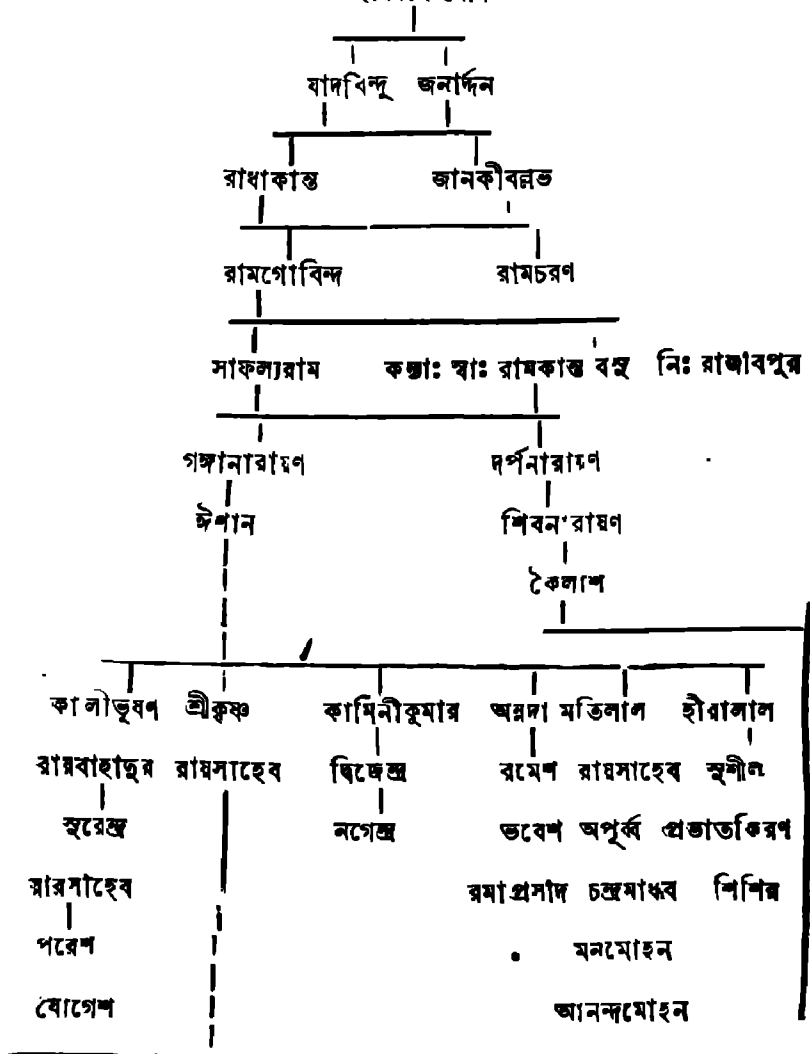 যাদবিন্দু জনার্দ্দন
রাধাকান্ত জানকীবল্লভ
রামগোবিন্দ রামচরণ
সাফল্যরাম কন্যাঃ স্বাঃ রামকান্ত বসু নিঃ রাজীবপুর
গঙ্গানারায়ণ দর্পনারায়ণ
ঈশান শিবনারায়ণ
কৈলাশ
কালীভূষণ শ্রীকৃষ্ণ কামিনীকুমার অন্নদা মতিলাল হীরালাল
রায়বাহাদুর রায়সাহেব দ্বিজেন্দ্র রমেশ রায়সাহেব সুশীল
সুরেন্দ্র নগেন্দ্র ভবেশ অপূর্ব্ব প্রভাতকিরণ
রায়সাহেব রমাপ্রসাদ চন্দ্রমাধব শিশির
পরেশ মনমোহন
যোগেশ আনন্দমোহন